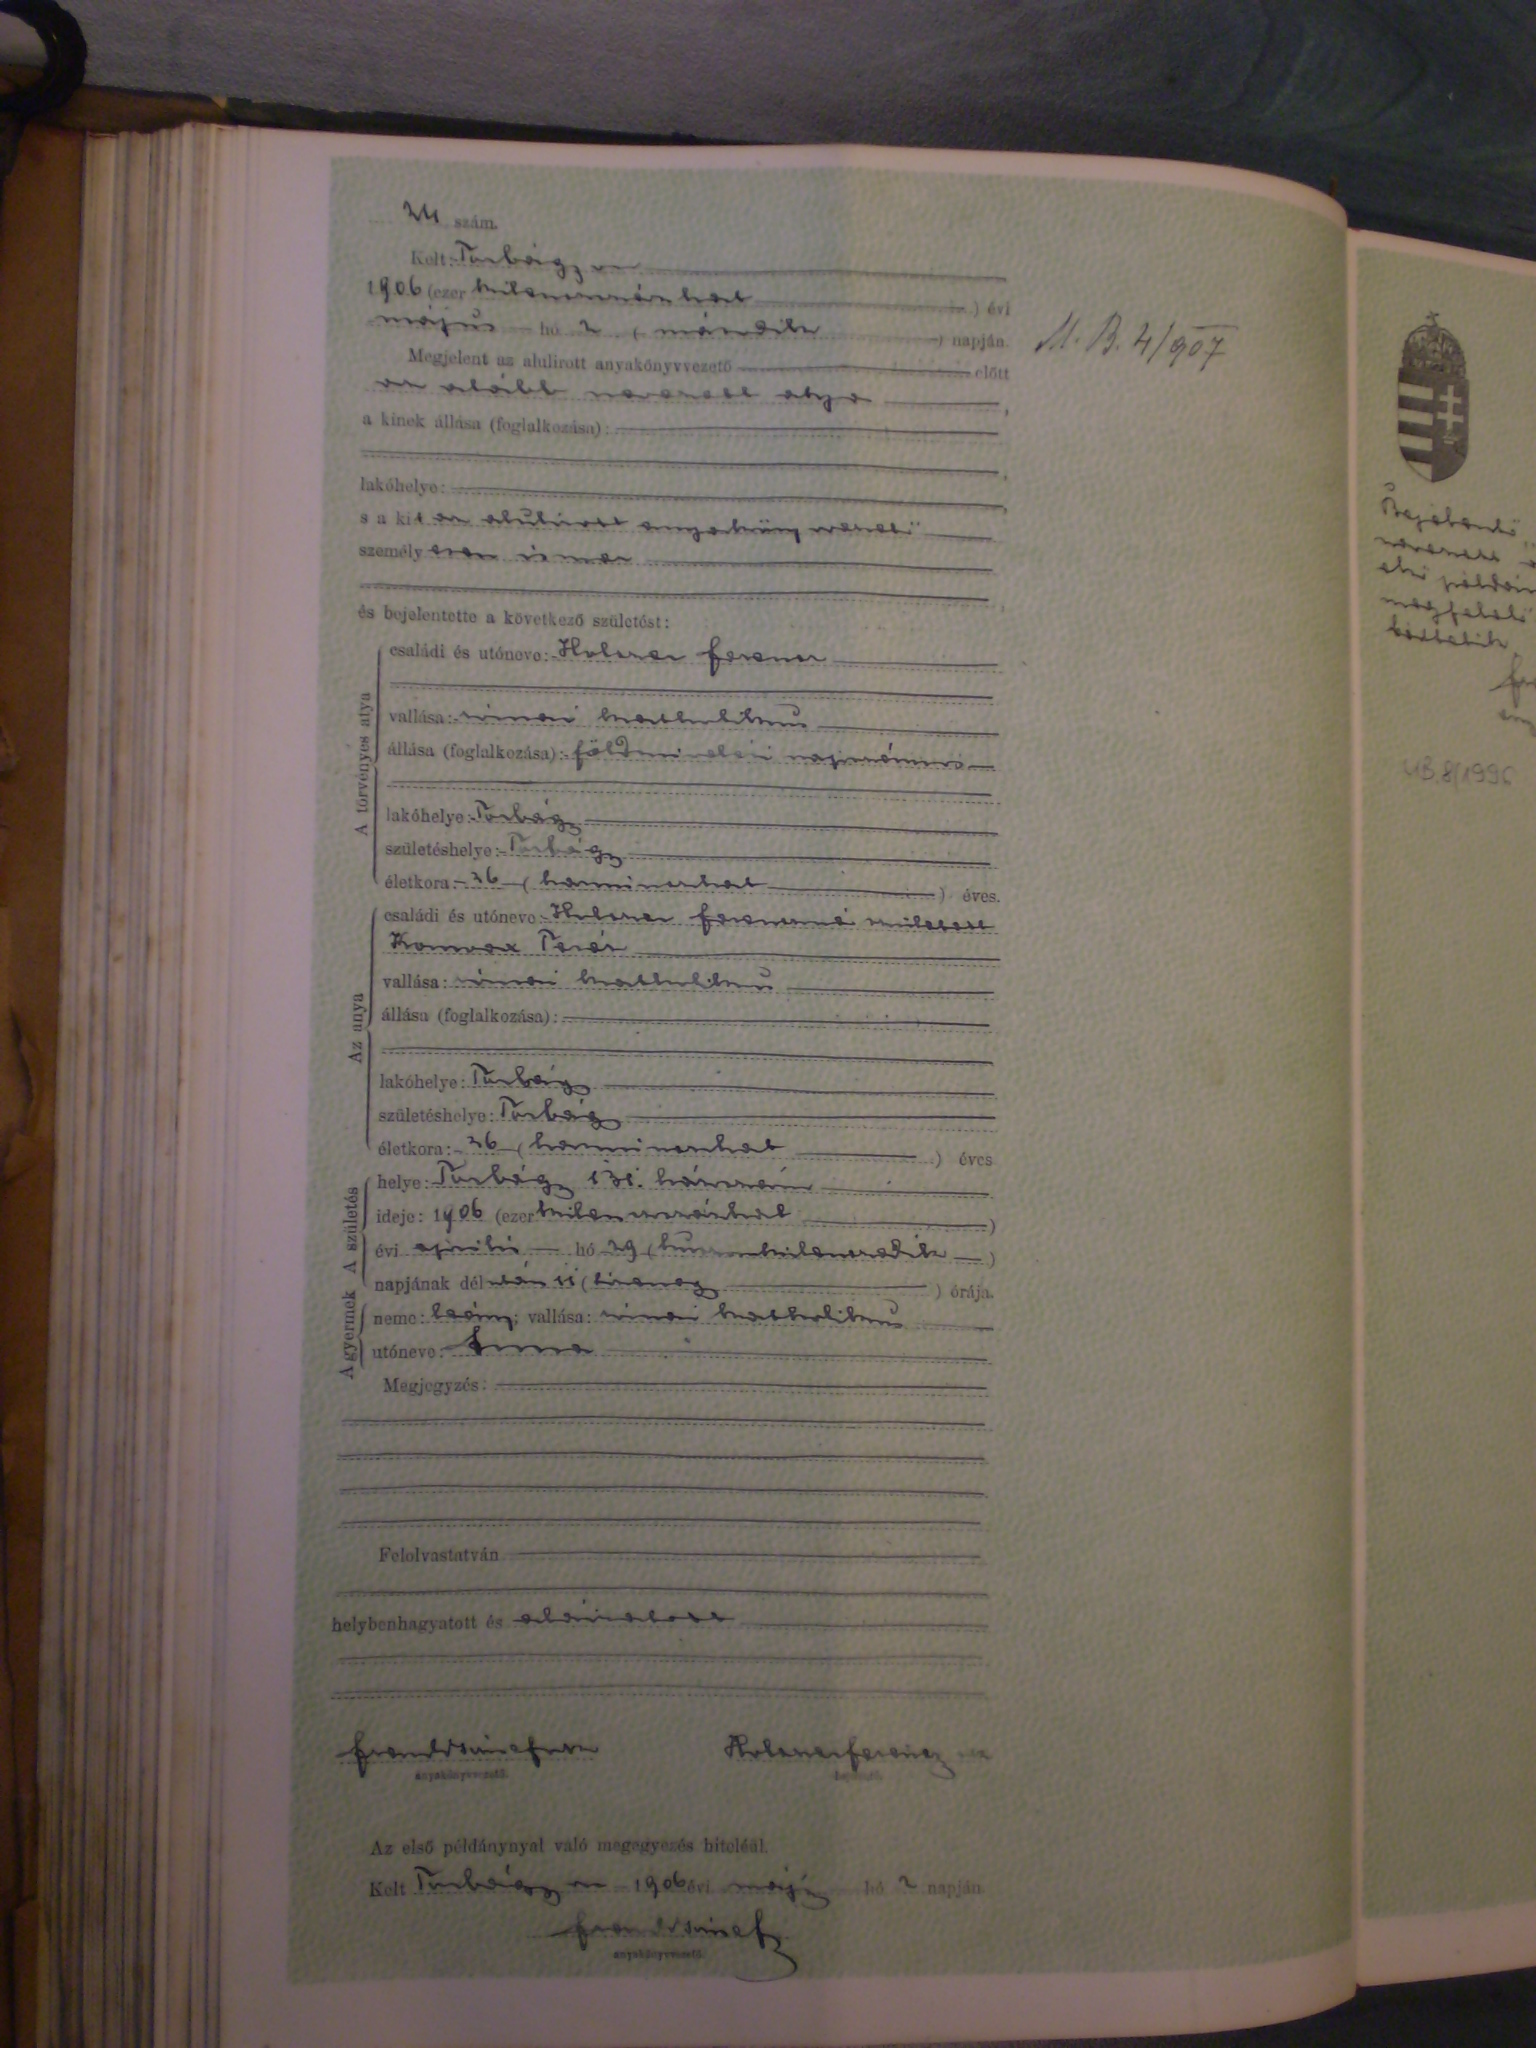 szám.
Kelt: Torbágyon
1906 (ezer kilencszázhat) évi
május hó 2 (második) napján.
Megjelent az alulirott anyakönyvvezető előtt
az alább nevezett atya,
a kinek állása (foglalkozása):
lakóhelye:
s a kit az alulirott anyakönyvvezető
személyesen ismer
és bejelentette a következő születést:
A törvényes atya
családi és utóneve: Holczer Ferencz
vallása: római katholikus
állása (foglalkozása): földmivelési napszámos
lakóhelye: Torbágy
születéshelye: Torbágy
életkora: 36 (harminczhat) éves.
Az anya
családi és utóneve: Holczer Ferenczné született
Teréz
vallása: római katholikus
állása (foglalkozása):
lakóhelye: Torbágy
születéshelye: Torbágy
életkora: 36 (harminczhat) éves
A születés
helye: Torbágy 131. házszám
ideje: 1906 (ezer kilenczszázhat)
évi április hó 29 (huszonkilenczedik)
napjának délután 11 (tizenegy) órája.
A gyermek
neme: leány; vallása: római katholikus
utóneve: Anna
Megjegyzés:
Felolvastatván
helybenhagyatott és aláiratott
Holczer Ferencz
anyakönyvvezető. bejelentő.
Az első példánynyal való megegyezés hiteléül.
Kelt Torbágyon 1906 évi máj. hó 2 napján
anyakönyvvezető.
M. B. 4/907
Bejelentő
nevezett
első példány
megfelelő
UB.8/1996